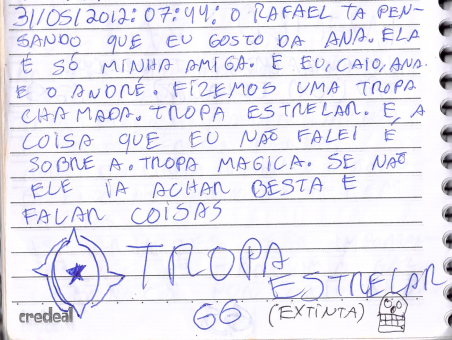 31/05/2012:07:44: O RAFAEL TA PEN-
SANDO QUE EU GOSTO DA ANA. ELA
É SÓ MINHA AMIGA. E EU, CAIO, ANA.
E O ANDRÉ. FIZEMOS UMA TROPA
CHAMADA. TROPA ESTRELAR. E A
COISA QUE EU NÃO FALEI É
SOBRE A. TROPA MAGICA. SE NÃO
ELE IA ACHAR BESTA E
FALAR COISAS
TROPA
ESTRELAR
GG (EXTINTA)
credeal